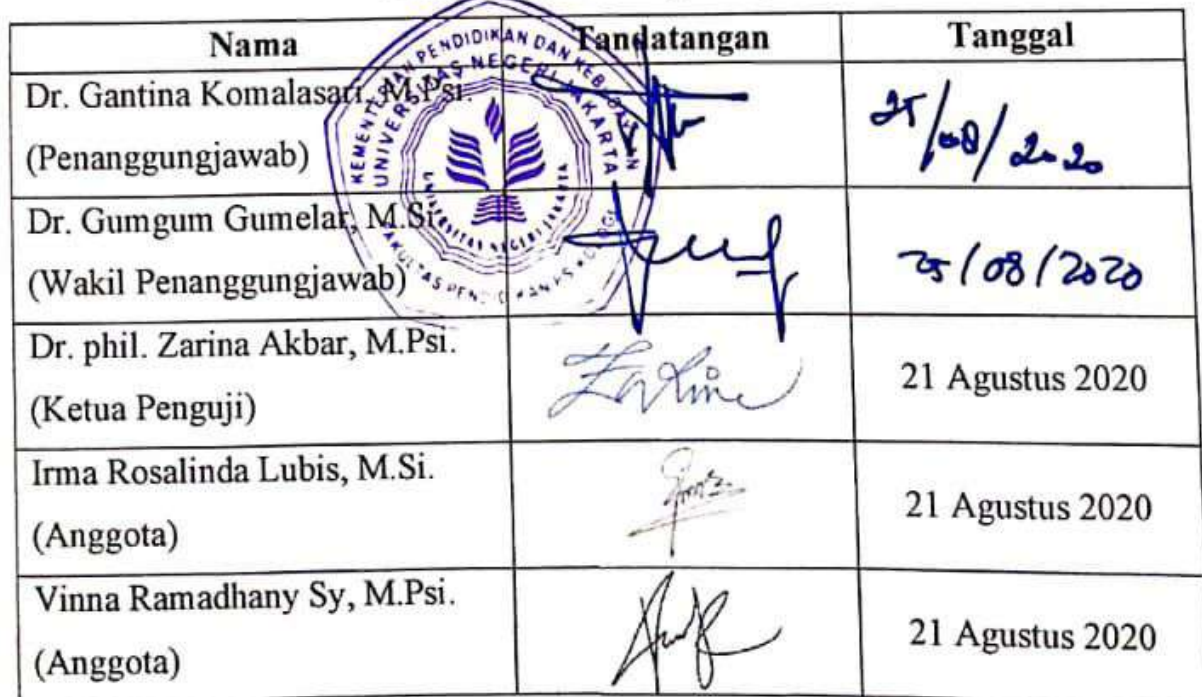 Nama Tandatangan Tanggal
Dr. Gantina Komalasari, M.Psi.
(Penanggungjawab)
25/08/2020
Dr. Gumgum Gumelar, M.Si.
(Wakil Penanggungjawab)
25/08/2020
Dr. phil. Zarina Akbar, M.Psi.
(Ketua Penguji)
21 Agustus 2020
Irma Rosalinda Lubis, M.Si.
(Anggota)
21 Agustus 2020
Vinna Ramadhany Sy, M.Psi.
(Anggota)
21 Agustus 2020
KEMENTERIAN PENDIDIKAN DAN KEBUDAYAAN
UNIVERSITAS NEGERI JAKARTA
UNIVERSITAS NEGERI JAKARTA
FAKULTAS PENDIDIKAN PSIKOLOGI